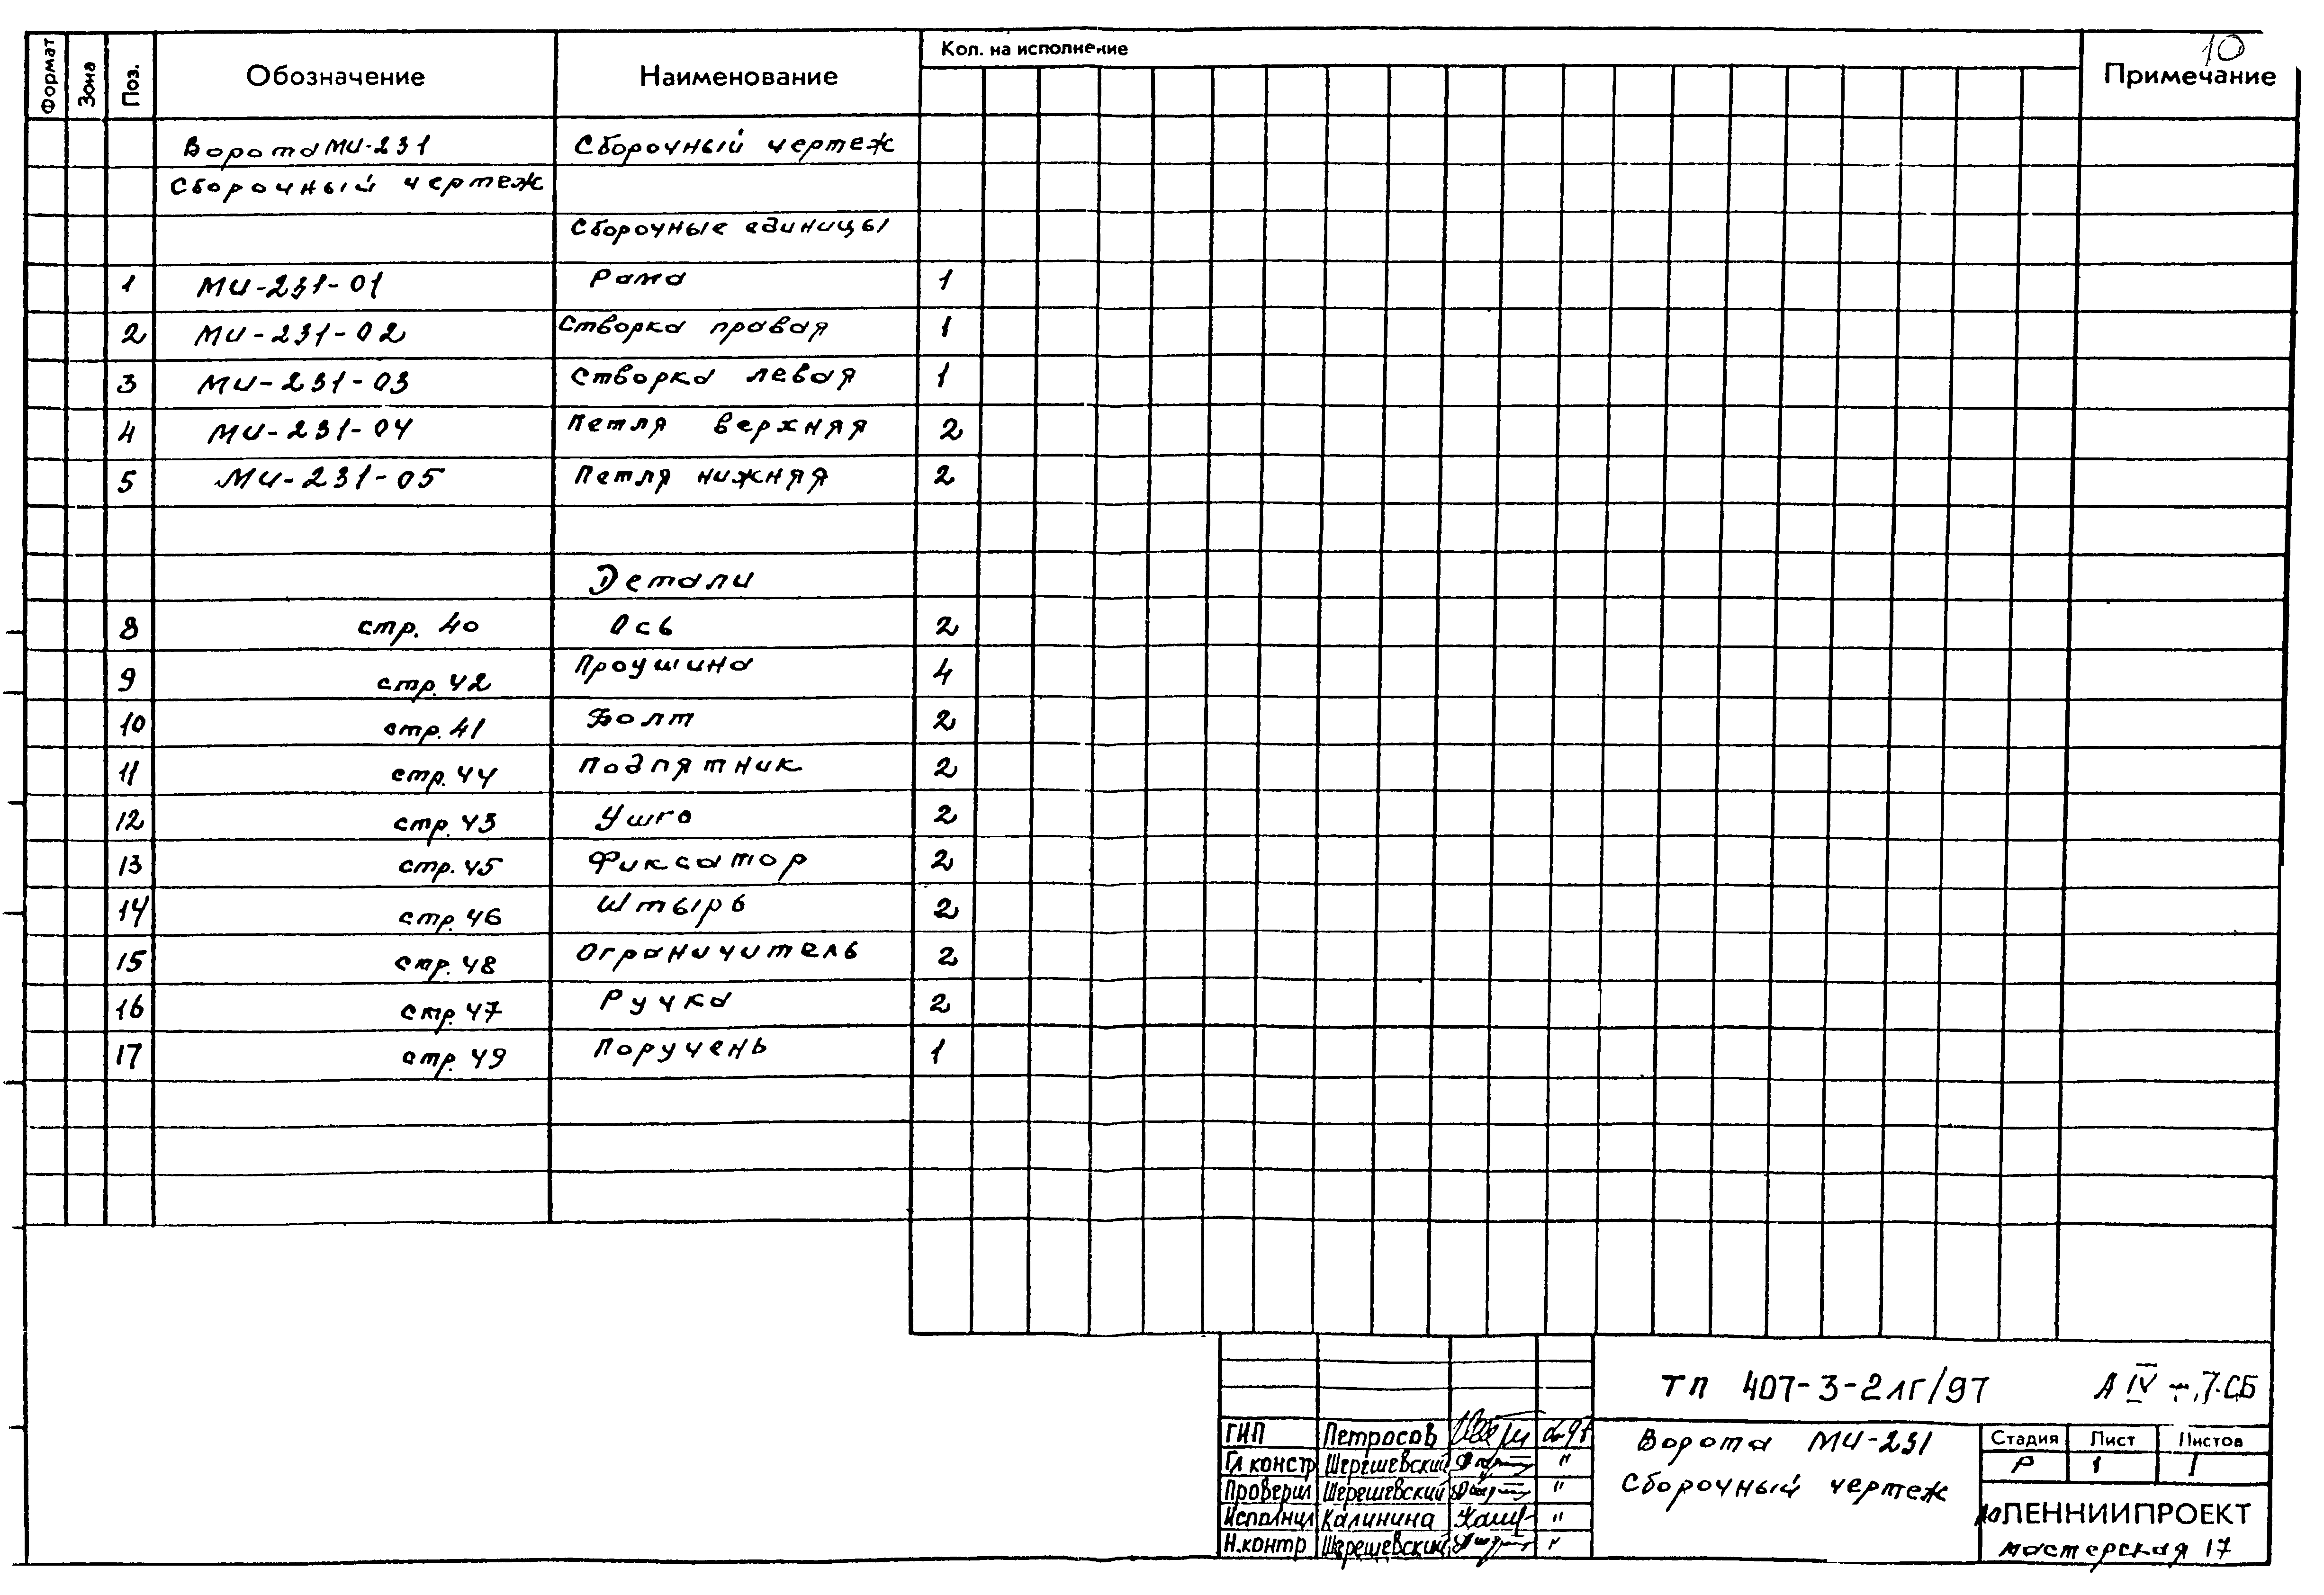 10
Формат Зона Поз. Обозначение Наименование Кол. на исполнение Примечание
Ворота МИ-231 Сборочный чертеж
Сборочный чертеж
Сборочные единицы
1 МИ-231-01 Рама 1
2 МИ-231-02 Створка правая 1
3 МИ-231-03 Створка левая 1
4 МИ-231-04 Петля верхняя 2
5 МИ-231-05 Петля нижняя 2
Детали
8 стр. 40 Ось 2
9 стр. 42 Проушина 4
10 стр. 41 Болт 2
11 стр. 44 Подпятник 2
12 стр. 43 Ушко 2
13 стр. 45 Фиксатор 2
14 стр. 46 Штырь 2
15 стр. 48 Ограничитель 2
16 стр. 47 Ручка 2
17 стр. 49 Поручень 1
ТП 407-3-2лг/97 А IV - 7.СБ
ГИП Петросов
Гл констр Шерешевский "
Проверил Шерешевский "
Исполнил Калинина "
Н.контр Шерешевский "
Ворота МИ-231
Сборочный чертеж
Стадия Лист Листов
Р 1 1
ЛЕННИИПРОЕКТ
мастерская 17